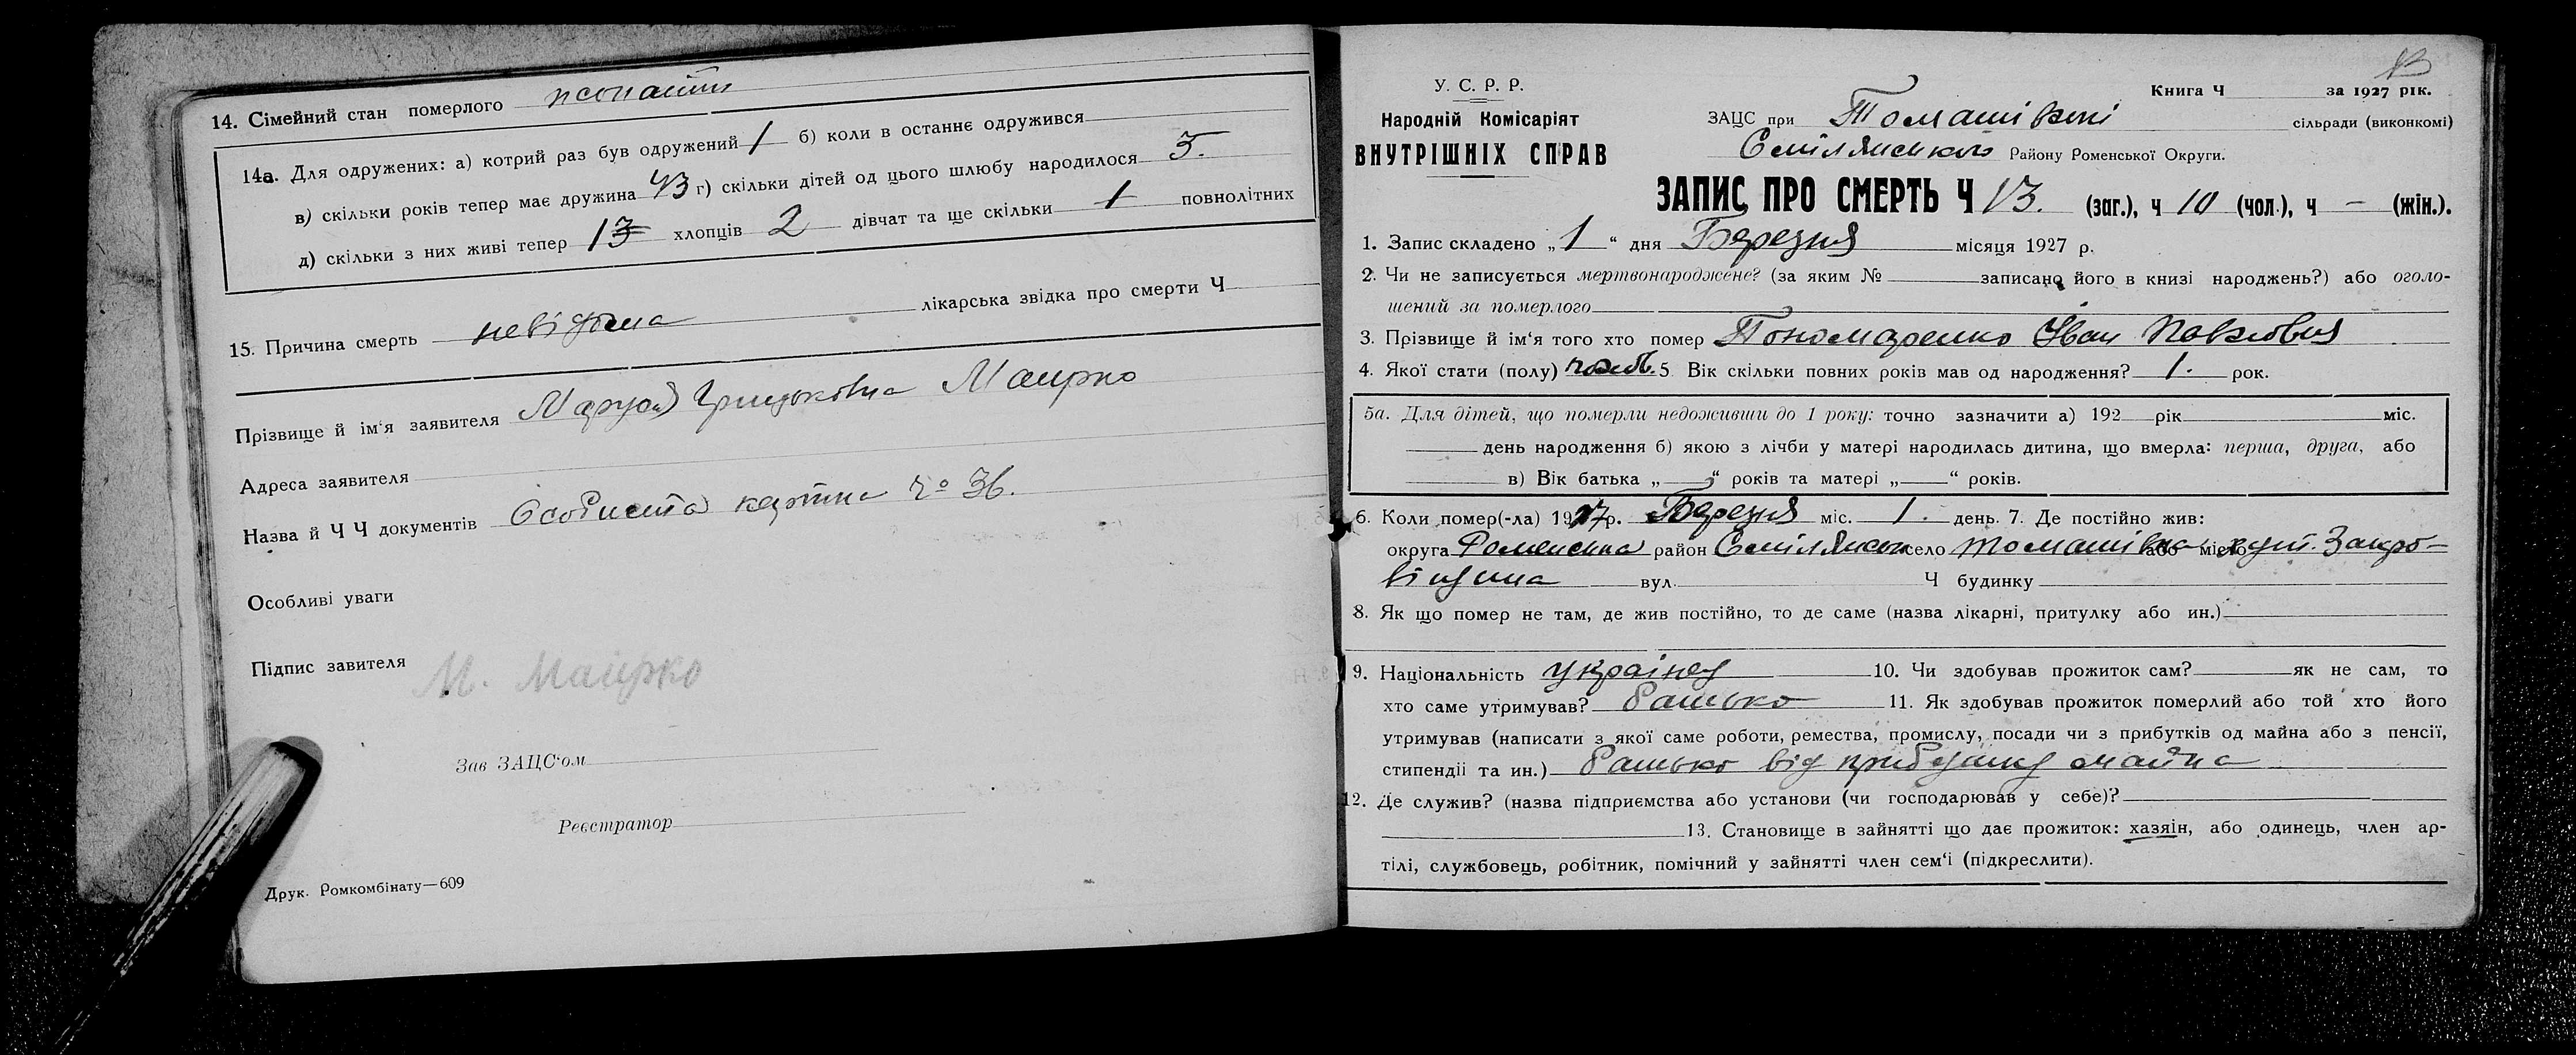 14. Сімейний стан померлого
14а. Для одружених: а) котрий раз був одружений 1 б) коли в останнє одружився
в) скільки років тепер має дружина 43 г) скільки дітей од цього шлюбу народилося 5.
д) скільки з них живі тепер 13 хлопців 2 дівчат та ще скільки 1 повнолітних
15. Причина смерть невідома лікарська звідка про смерти Ч
Прізвище й ім'я заявителя Маруся Грицьковна Маирко
Адреса заявителя
Назва й Ч Ч документів Особиста картка чо 36.
Особливі уваги
Підпис завителя М. Маирко
Зав ЗАЦС'ом
Реєстратор
Друк. Ромкомбінату—609
У. С. Р. Р.
Книга Ч за 1927 рік.
Народній Комісаріят
ВНУТРІШНІХ СПРАВ
ЗАЦС при Томашівскі сільради (виконкомі)
Смілянського Району Роменської Округи.
ЗАПИС ПРО СМЕРТЬ Ч 13. (заг.), ч 10 (чол.), ч – (жін.).
1. Запис складено „1“ дня Березня місяця 1927 р.
2. Чи не записується мертвонароджене? (за яким № записано його в книзі народжень?) або оголо-
шений за померлого
3. Прізвище й ім'я того хто помер Пономаренко Іван Павлович
4. Якої стати (полу) чолов. 5. Вік скільки повних років мав од народження? 1. рок.
5а. Для дітей, що померли недоживши до 1 року: точно зазначити а) 192 рік міс.
день народження б) якою з лічби у матері народилась дитина, що вмерла: перша, друга, або
в) Вік батька „ “ років та матері „ “ років.
6. Коли помер(-ла) 1927р. Березня міс. 1. день. 7. Де постійно жив:
округа Роменська район Смілянськ село Томашівка або місто хут. Закро-
віщина вул. Ч будинку
8. Як що помер не там, де жив постійно, то де саме (назва лікарні, притулку або ин.)
9. Національність українец 10. Чи здобував прожиток сам? як не сам, то
хто саме утримував? батько 11. Як здобував прожиток померлий або той хто його
утримував (написати з якої саме роботи, ремества, промислу, посади чи з прибутків од майна або з пенсії,
стипендії та ин.) батько від прибутку майна
12. Де служив? (назва підприємства або установи (чи господарював у себе)?
13. Становище в зайнятті що дає прожиток: хазяін, або одинець, член ар-
тілі, службовець, робітник, помічний у зайнятті член сем'і (підкреслити).